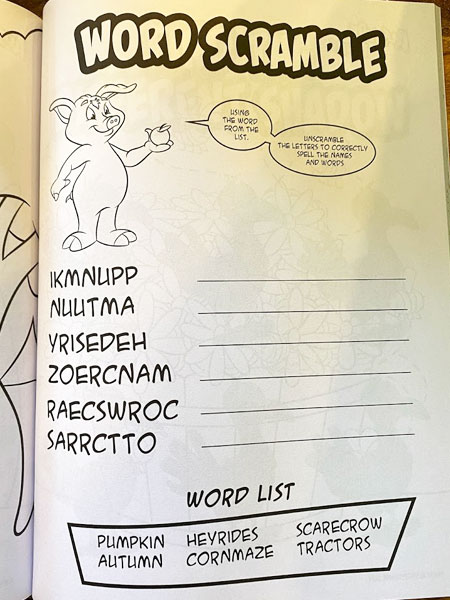 WORD SCRAMBLE
USING
THE WORD
FROM THE
LIST.
UNSCRAMBLE
THE LETTERS TO CORRECTLY
SPELL THE NAMES
AND WORDS
IKMNUPP
NUUTMA
YRISEDEH
ZOERCNAM
RAECSWROC
SARRCTTO
WORD LIST
PUMPKIN HEYRIDES SCARECROW
AUTUMN CORNMAZE TRACTORS